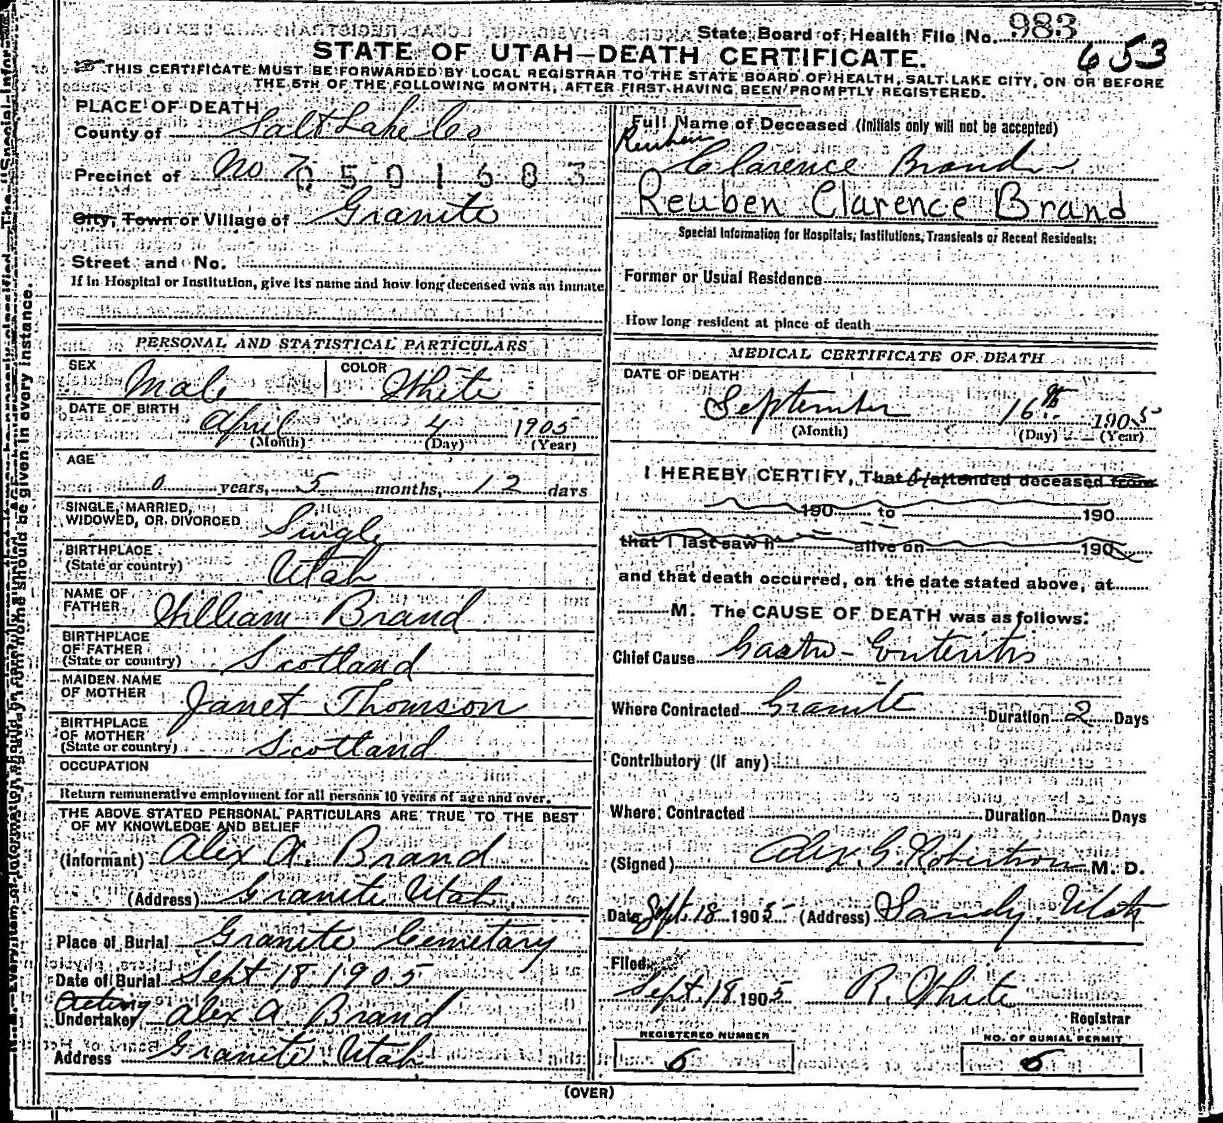 State Board of Health File No. 983
653
STATE OF UTAH—DEATH CERTIFICATE.
THIS CERTIFICATE MUST BE FORWARDED BY LOCAL REGISTRAR TO THE STATE BOARD OF HEALTH, SALT LAKE CITY, ON OR BEFORE
THE 5TH OF THE FOLLOWING MONTH, AFTER FIRST HAVING BEEN PROMPTLY REGISTERED.
PLACE OF DEATH
County of Salt Lake Co
Precinct of No 7
0501683
City, Town or Village of Granite
Street and No.
If in Hospital or Institution, give its name and how long deceased was an inmate
Full Name of Deceased (Initials only will not be accepted)
Reuben
Clarence Brand
Reuben Clarence Brand
Special Information for Hospitals, Institutions, Transients or Recent Residents:
Former or Usual Residence
How long resident at place of death
PERSONAL AND STATISTICAL PARTICULARS
SEX Male COLOR White
DATE OF BIRTH April 4 1905
(Month) (Day) (Year)
AGE
0 years, 5 months, 12 days
SINGLE, MARRIED,
WIDOWED, OR DIVORCED Single
BIRTHPLACE
(State or country) Utah
NAME OF
FATHER William Brand
BIRTHPLACE
OF FATHER
(State or country) Scotland
MAIDEN NAME
OF MOTHER Janet Thomson
BIRTHPLACE
OF MOTHER
(State or country) Scotland
OCCUPATION
Return remunerative employment for all persons 10 years of age and over.
THE ABOVE STATED PERSONAL PARTICULARS ARE TRUE TO THE BEST
OF MY KNOWLEDGE AND BELIEF
(Informant) Alex A. Brand
(Address) Granite Utah
Place of Burial Granite Cemetary
Date of Burial Sept 18 1905
Acting
Undertaker Alex A Brand
Address Granite, Utah
MEDICAL CERTIFICATE OF DEATH
DATE OF DEATH
September 16th 1905
(Month) (Day) (Year)
I HEREBY CERTIFY, That I attended deceased from
190 to 190
that I last saw h alive on 190
and that death occurred, on the date stated above, at
M. The CAUSE OF DEATH was as follows:
Chief Cause Gastro-Enteritis
Where Contracted Granite Duration 2 Days
Contributory (if any)
Where Contracted Duration Days
(Signed) Alex. G. Robertson M. D.
Date Sept. 18 1905 (Address) Sandy, Utah
Filed
Sept. 18 1905 R. White
Registrar
REGISTERED NUMBER
6
NO. OF BURIAL PERMIT
6
(OVER)